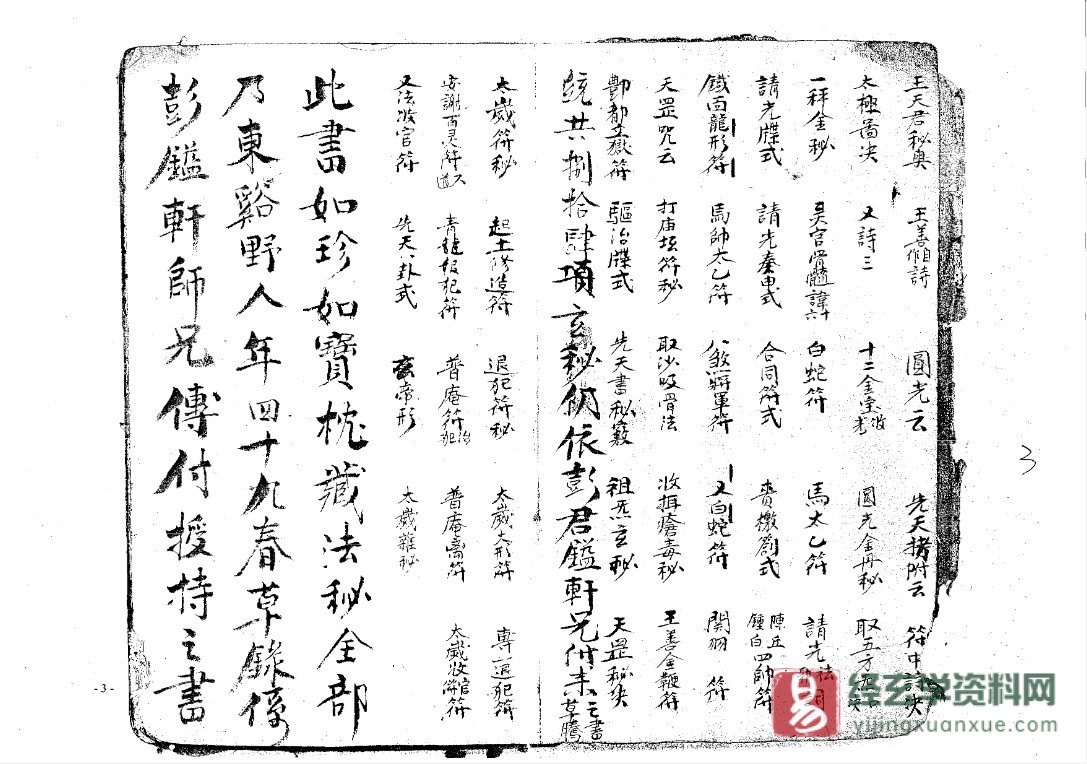 王天君秘奥 王善詩 圓光云 先天拷附云 符中訣
太極圖决 又詩三 十二金 圓光金丹秘 取五方
一秤金秘 吴官骨髓諱 白蛇符 馬太乙符 請光
請光牒式 請光奏申式 合同符式 賫檄劄式 陳丘鍾白四帥符
鐵面龍形符 馬帥太乙符 八煞將軍符 又白蛇符 関羽符
天罡咒云 打庙坛符秘 取沙咬骨法 收揖瘡毒秘 王善金鞭符
酆都立獄符 驅治牒式 先天書秘竅 祖炁玄秘 天罡秘訣
統共捌拾肆項玄秘仍依彭君鎰軒兄付来之書草騰
太歲符秘 起土修造符 退犯符秘 太歲大形符 專退犯符
安謝百灵符 青龍板犯符 普庵符治犯 普庵符 太歲收符
又法收官符 先天八卦式 帝形 太歲雜秘
此書如珍如寶枕藏法秘全部
乃東谿野人年四十九春草錄係
彭鎰軒師兄傳付授持之書
-3-
3
易
经玄学资料网
yijingxuanxue.com